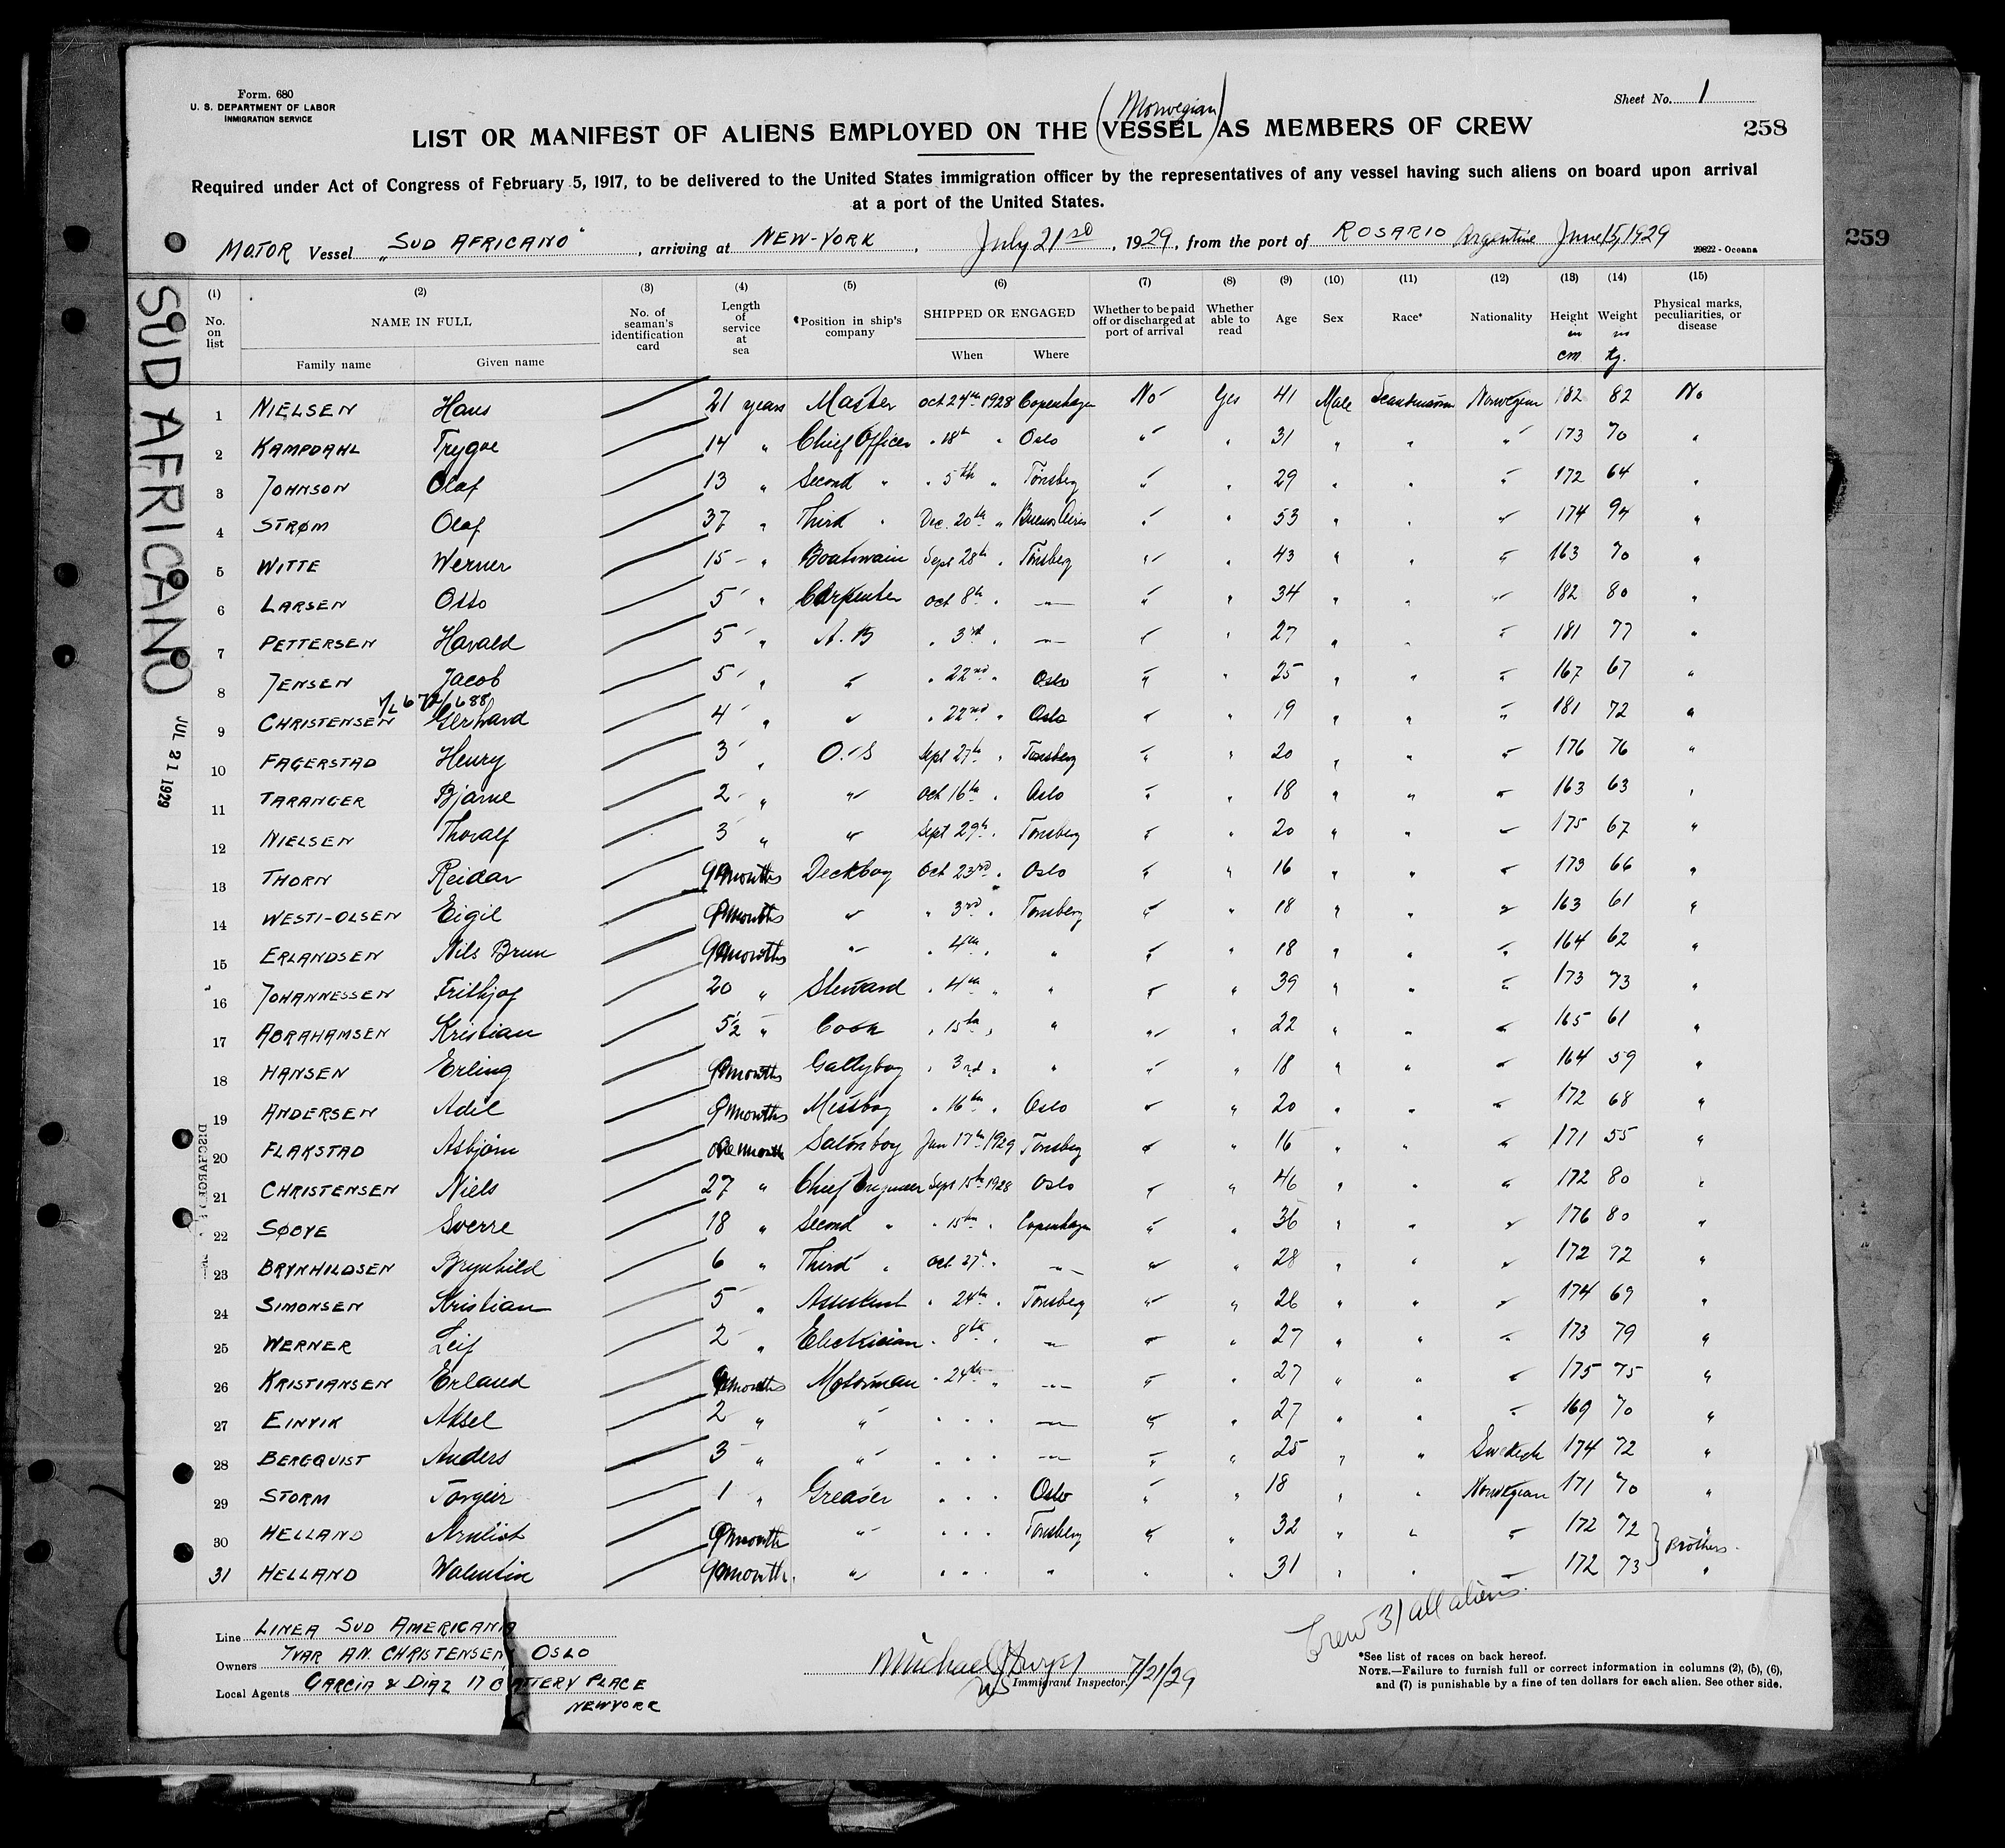 Form. 680
U. S. DEPARTMENT OF LABOR
IMMIGRATION SERVICE
Sheet No. 1
(Norwegian)
LIST OR MANIFEST OF ALIENS EMPLOYED ON THE VESSEL AS MEMBERS OF CREW
258
Required under Act of Congress of February 5, 1917, to be delivered to the United States immigration officer by the representatives of any vessel having such aliens on board upon arrival
at a port of the United States.
MOTOR Vessel "SUD AFRICANO", arriving at NEW-YORK, July 21st, 1929, from the port of ROSARIO Argentine June 15, 1929
29822-Oceana
259
SUD AFRICANO
JUL 21 1929
(1) (2) (3) (4) (5) (6) (7) (8) (9) (10) (11) (12) (13) (14) (15)
No. on list NAME IN FULL No. of seaman's identification card Length of service at sea *Position in ship's company SHIPPED OR ENGAGED Whether to be paid off or discharged at port of arrival Whether able to read Age Sex Race* Nationality Height in cm Weight in kg. Physical marks, peculiarities, or disease
Family name Given name When Where
1 NIELSEN Hans 21 years Master Oct 24th 1928 Copenhagen No Yes 41 Male Scandinavian Norwegian 182 82 No
2 KAMPDAHL Trygve 14 " Chief Officer " 18th " Oslo " " 31 " " " 173 70 "
3 JOHNSON Olaf 13 " Second " " 5th " Tönsberg " " 29 " " " 172 64 "
4 STRØM Olaf 37 " Third " Dec. 20th " Buenos Aires " " 53 " " " 174 94 "
5 WITTE Werner 15 " Boatswain Sept 28th " Tönsberg " " 43 " " " 163 70 "
6 LARSEN Otto 5 " Carpenter Oct 8th " " " " 34 " " " 182 80 "
7 PETTERSEN Harald 5 " A.B " 3rd " " " " 27 " " " 181 77 "
8 JENSEN Jacob 5 " " " 22nd " Oslo " " 25 " " " 167 67 "
9 CHRISTENSEN Gerhard 4 " " " 22nd " Oslo " " 19 " " " 181 72 "
10 FAGERSTAD Henry 3 " O.S Sept 27th " Tönsberg " " 20 " " " 176 76 "
11 TARANGER Bjarne 2 " " Oct 16th " Oslo " " 18 " " " 163 63 "
12 NIELSEN Thoralf 3 " " Sept 29th " Tönsberg " " 20 " " " 175 67 "
13 THORN Reidar 9 months Deckboy Oct 23rd " Oslo " " 16 " " " 173 66 "
14 WESTI-OLSEN Eigil 9 months " " 3rd " Tönsberg " " 18 " " " 163 61 "
15 ERLANDSEN Nils Brun 9 months " " 4th " " " " 18 " " " 164 62 "
16 JOHANNESSEN Frithjof 20 " Steward " 4th " " " " 39 " " " 173 73 "
17 ABRAHAMSEN Kristian 5½ " Cook " 15th " " " " 22 " " " 165 61 "
18 HANSEN Erling 9 months Galleyboy " 3rd " " " " 18 " " " 164 59 "
19 ANDERSEN Adil 9 months Messboy " 16th " Oslo " " 20 " " " 172 68 "
20 FLAKSTAD Asbjörn month Salonboy Jan 17th 1929 Tönsberg " " 16 " " " 171 55 "
21 CHRISTENSEN Niels 27 " Chief Engineer Sept 15th 1928 Oslo " " 46 " " " 172 80 "
22 SØOYE Sverre 18 " Second " " 15th " Copenhagen " " 36 " " " 176 80 "
23 BRYNHILDSEN Brynhild 6 " Third " Oct 27th " " " " 28 " " " 172 72 "
24 SIMONSEN Kristian 5 " Assistent " 24th " Tönsberg " " 26 " " " 174 69 "
25 WERNER Leif 2 " Electrician " 8th " " " " 27 " " " 173 79 "
26 KRISTIANSEN Erland 9 months Motorman " 24th " " " " 27 " " " 175 75 "
27 EINVIK Aksel 2 " " " " " " " " 27 " " " 169 70 "
28 BERGQUIST Anders 3 " " " " " " " " 25 " " Swedish 174 72 "
29 STORM Torgeir 1 " Greaser " " " Oslo " " 18 " " Norwegian 171 70 "
30 HELLAND Arnliot 9 month " " " " Tönsberg " " 32 " " " 172 72 "
31 HELLAND Walentin 9 month " " " " " " " 31 " " " 172 73 "
Brothers
Crew 31 all aliens
Line LINEA SUD AMERICANA
Owners IVAR AN. CHRISTENSEN, OSLO
Local Agents GARCIA & DIAZ 17 BATTERY PLACE
NEWYORK
Michael 7/21/29
Immigrant Inspector.
*See list of races on back hereof.
NOTE.—Failure to furnish full or correct information in columns (2), (5), (6),
and (7) is punishable by a fine of ten dollars for each alien. See other side.